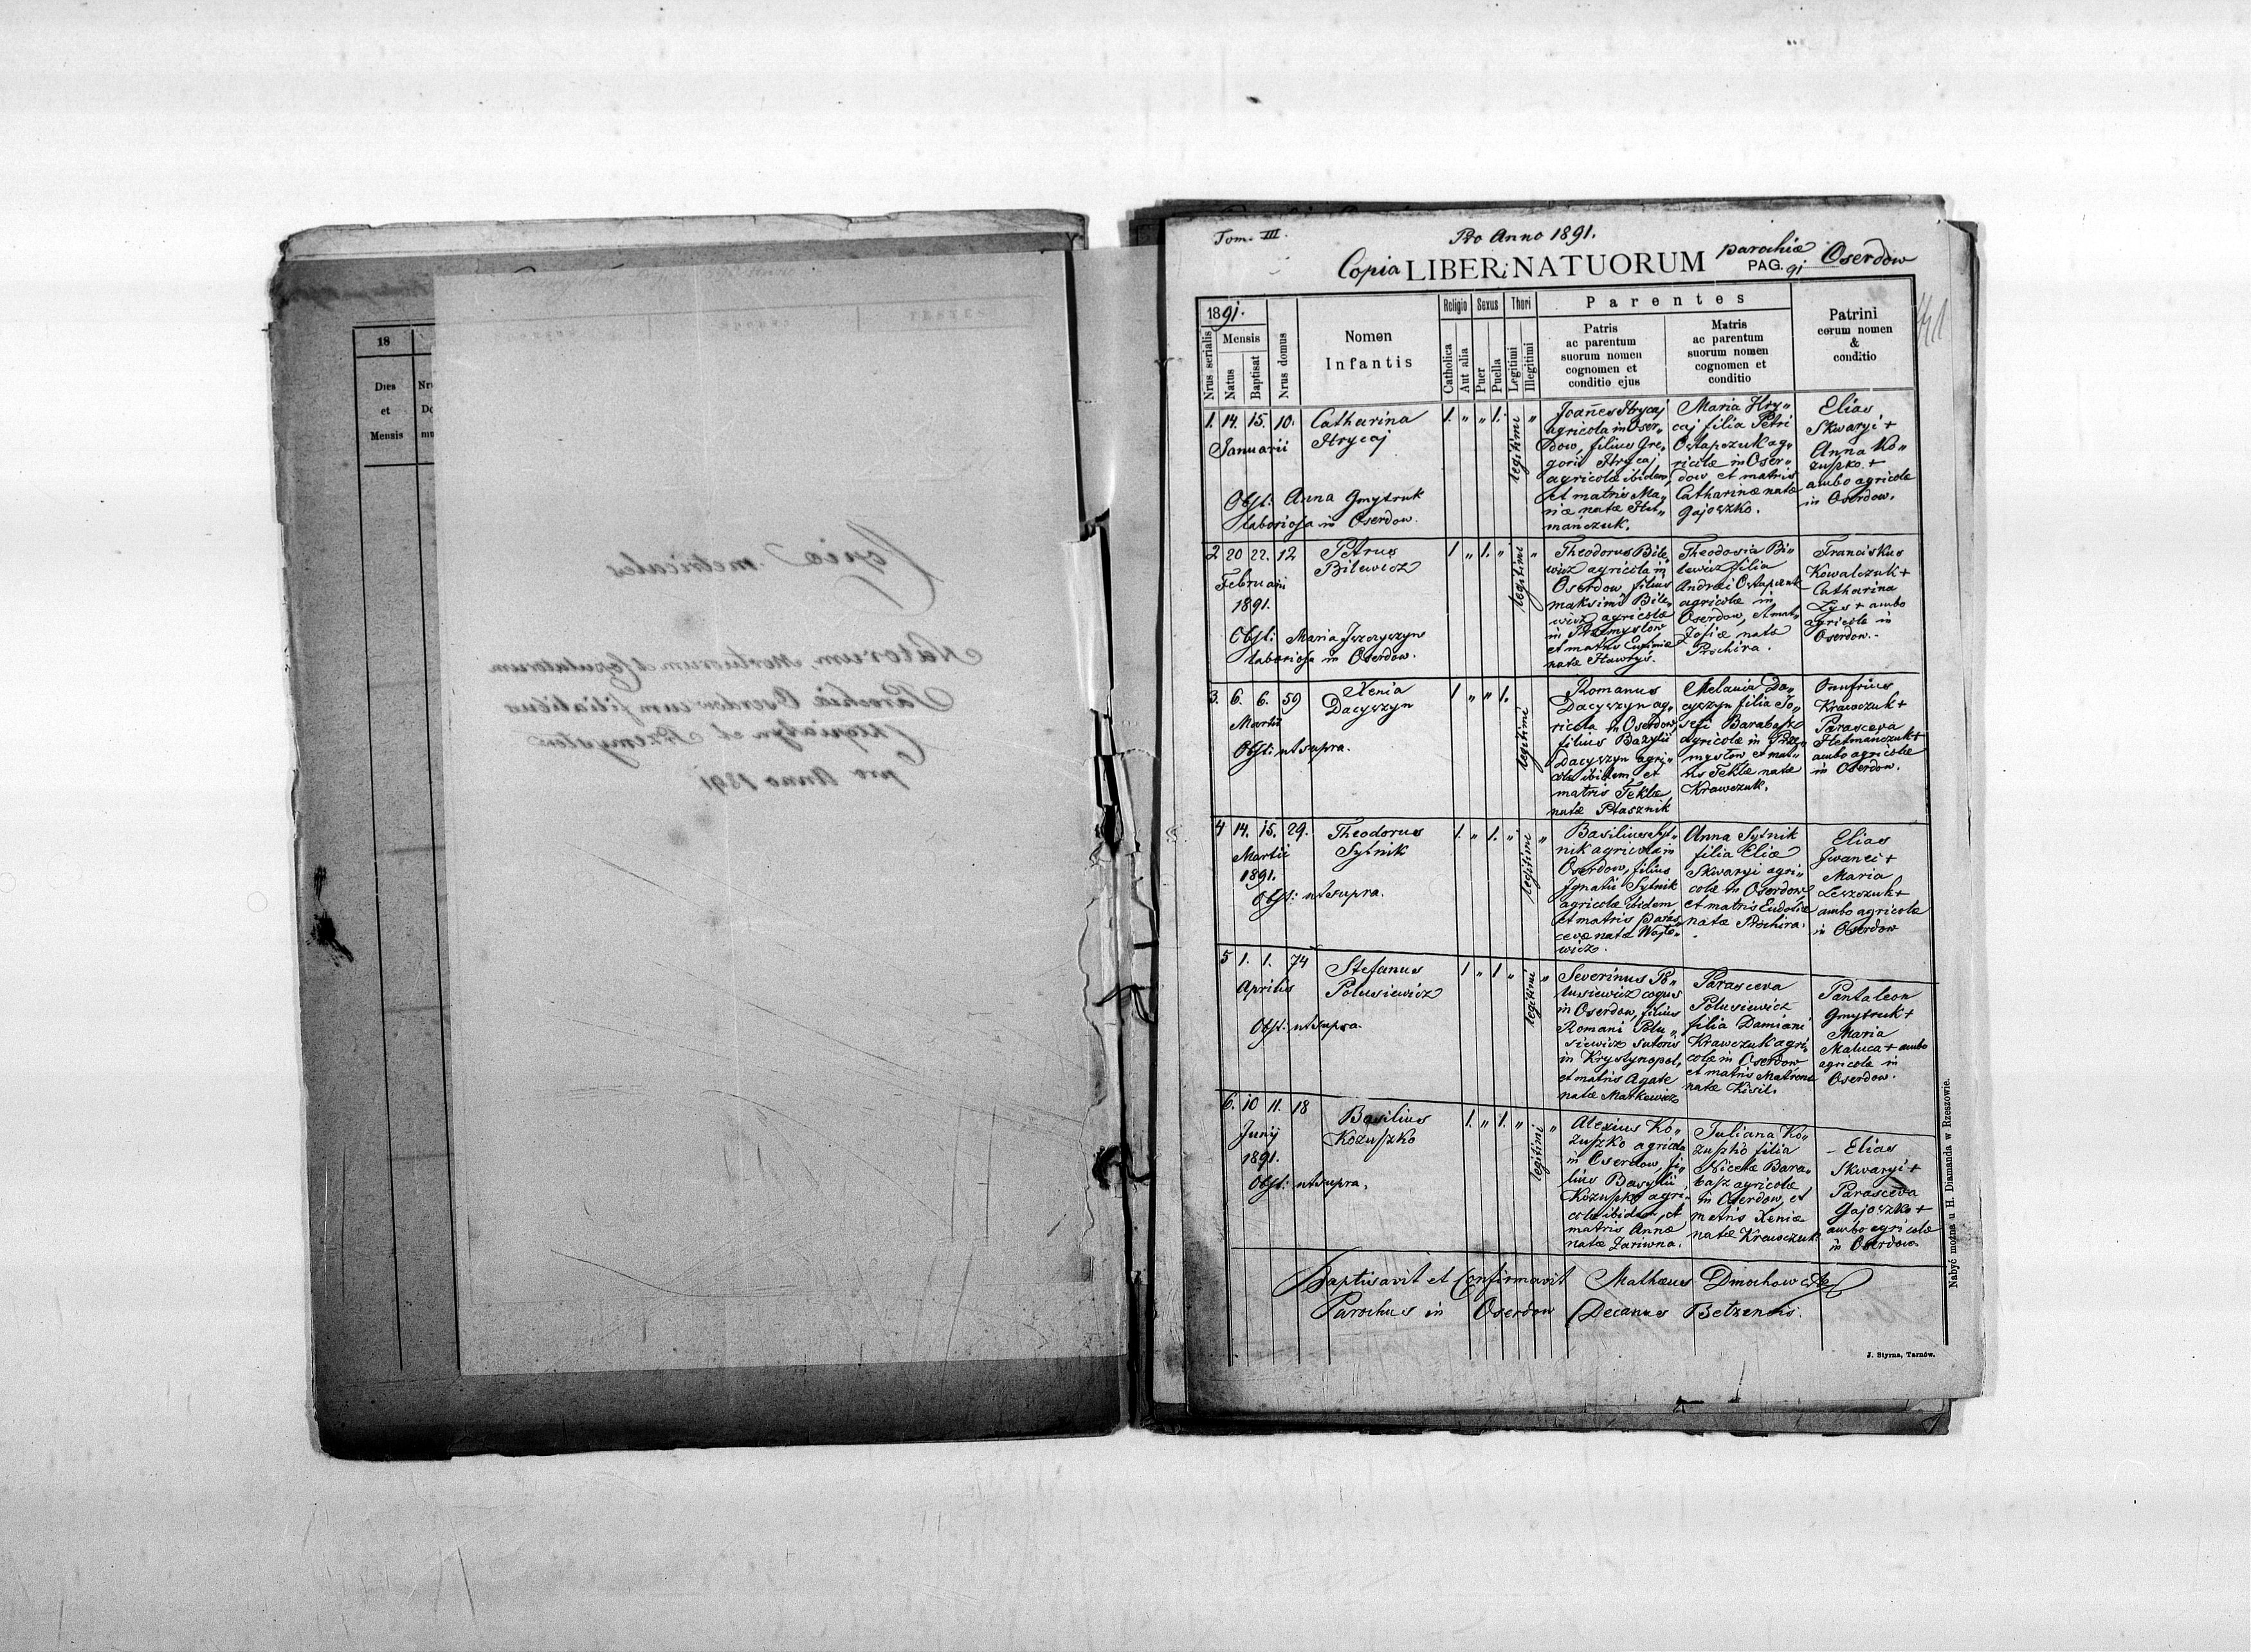 18
Dies
et
Mensis
Copia metricales
Natorum, Mortuorum et Copulatorum
Parochia Oserdow cum filialibus
pro Anno 1891
Tom. III.
Pro Anno 1891.
Copia LIBER NATUORUM parochiæ Oserdow
PAG. 91
1891.
Nrus serialis
Mensis
Natus
Baptisat
Nrus domus
Nomen
Infantis
Religio
Catholica
Aut alia
Sexus
Puer
Puella
Thori
Legitimi
Illegitimi
Parentes
Patris
ac parentum
suorum nomen
cognomen et
conditio ejus
Matris
ac parentum
suorum nomen
cognomen et
conditio
Patrini
eorum nomen
&
conditio
1. 14. 15. 10.
Januarii
Catharina
Hrycaj
1. " " 1. legitimi "
Obst: Anna Gmytruk
laboriosa in Oserdow.
Joannes Hrycaj
agricola in Oser"
dow, filius Gre"
gorii Hrycaj
agricolæ ibidem,
et matris Ma"
riæ natæ Het"
mańczuk.
Maria Hry"
caj filia Petri
Ostapczuk ag"
ricolæ in Oser"
dow et matris
Catharinæ natæ
Gajoszko.
Elias
Skwaryi +
Anna Ko"
zuszko +
ambo agricolæ
in Oserdow.
2 20 22. 12
Februarii
1891.
Petrus
Bilewicz
1 " 1. " legitimi "
Obst: Maria
laboriosa in Oserdow.
Theodorus Bile"
wicz agricola in
Oserdow, filius
Maksimi Bile"
wicz agricolæ
in Przemysłow
et matris Eufimiæ
natæ Hawryś.
Theodosia Bi"
lewicz filia
Andrei Ostapczuk
agricolæ in
Oserdow, et mat"
Zofiæ natæ
Prochira.
Franciskus
Kowalczuk +
Catharina
Lys + ambo
agricolæ in
Oserdow.
3. 6. 6. 59
Martii
Xenia
Dacyszyn
1 " " 1. legitimi
Obst: ut supra.
Romanus
Dacyszyn ag"
ricola in Oserdow,
filius Bazylii
Dacyszyn agri"
colæ ibidem, et
matris Teklæ,
natæ Ptasznik
Melania Da"
cyszyn filia Jo"
sefi Barabasz
agricolæ in Prze"
mysłow et mat"
ris Teklæ natæ
Krawczuk.
Onufrius
Krawczuk +
Parasceva
Hetmanczuk +
ambo agricolæ
in Oserdow.
4 14. 15. 29.
Martii
1891.
Theodorus
Sytnik
1. " 1. " legitimi "
Obst: ut supra.
Basilius Syt"
nik agricola in
Oserdow, filius
Ignatii Sytnik
agricolæ ibidem
et matris Paras"
cevæ natæ Wojto"
wicz.
Anna Sytnik
filia Eliæ
Skwaryi agri"
colæ in Oserdow
et matris Eudosiæ
natæ Prochira.
Elias
Iwanci +
Maria
Leszczuk +
ambo agricolæ
in Oserdow
5 1. 1. 74
Aprilis
Stefanus
Polusiewicz
1 " 1 " legitimi "
Obst: ut supra.
Severinus Po"
lusiewicz coquus
in Oserdow, filius
Romani Polu"
siewicz sutoris
in Krystynopol,
et matris Agatæ
natæ Markewicz
Parasceva
Polusiewicz
filia Damiani
Krawczuk agri"
colæ in Oserdow
et matris Matronæ
natæ Kisil.
Pantaleon
Gmytruk +
Maria
Maluca + ambo
agricolæ in
Oserdow.
6. 10 11. 18
Junij
1891.
Basilius
Kozuszko
1. " 1. " legitimi "
Obst: ut supra.
Alexius Ko"
zuszko agricola
in Oserdow, fi"
lius Basylii
Kozuszko agri"
colæ ibidem, et
matris Annæ
natæ Zariwna.
Juliana Ko"
zuszko filia
Nicetæ Bara"
basz agricolæ
in Oserdow, et
matris Xeniæ
natæ Krawczuk
Elias
Skwaryi +
Parasceva
Gajoszko +
ambo agricolæ
in Oserdow
Baptisavit et Confirmavit Mathæus Dmochowski
Parochus in Oserdow Decanus Belzensis.
Nabyć można u H. Diamanda w Rzeszowie.
J. Styrna, Tarnów.